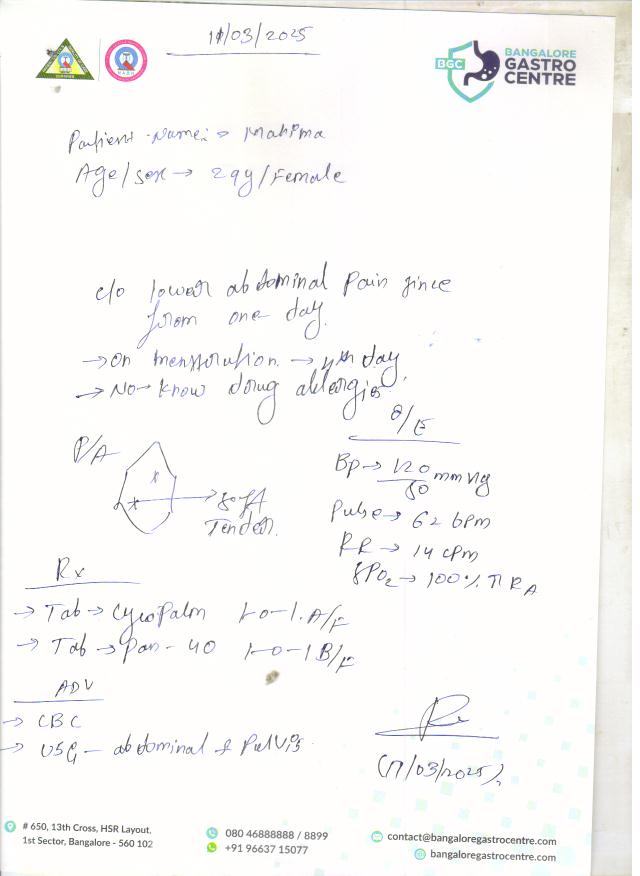 11/03/2025
BGC
BANGALORE
GASTRO
CENTRE
Patient Name: → Mahima
Age/Sex → 29y/Female
c/o lower abdominal pain since
from one day.
→ On menstruation → 4th day
→ No know drug allergies.
P/A
O/E
BP → 120/80 mmHg
→ Soft
Tender.
Pulse → 62 bpm
RR → 14 cpm
SPO2 → 100% RA
Rx
→ Tab → Cyclopalm 1-0-1. A/F
→ Tab → Pan - 40 1-0-1 B/F
ADV
→ CBC
→ USG - abdominal & Pelvis
(11/03/2025)
# 650, 13th Cross, HSR Layout,
1st Sector, Bangalore - 560 102
080 46888888 / 8899
+91 96637 15077
contact@bangaloregastrocentre.com
bangaloregastrocentre.com